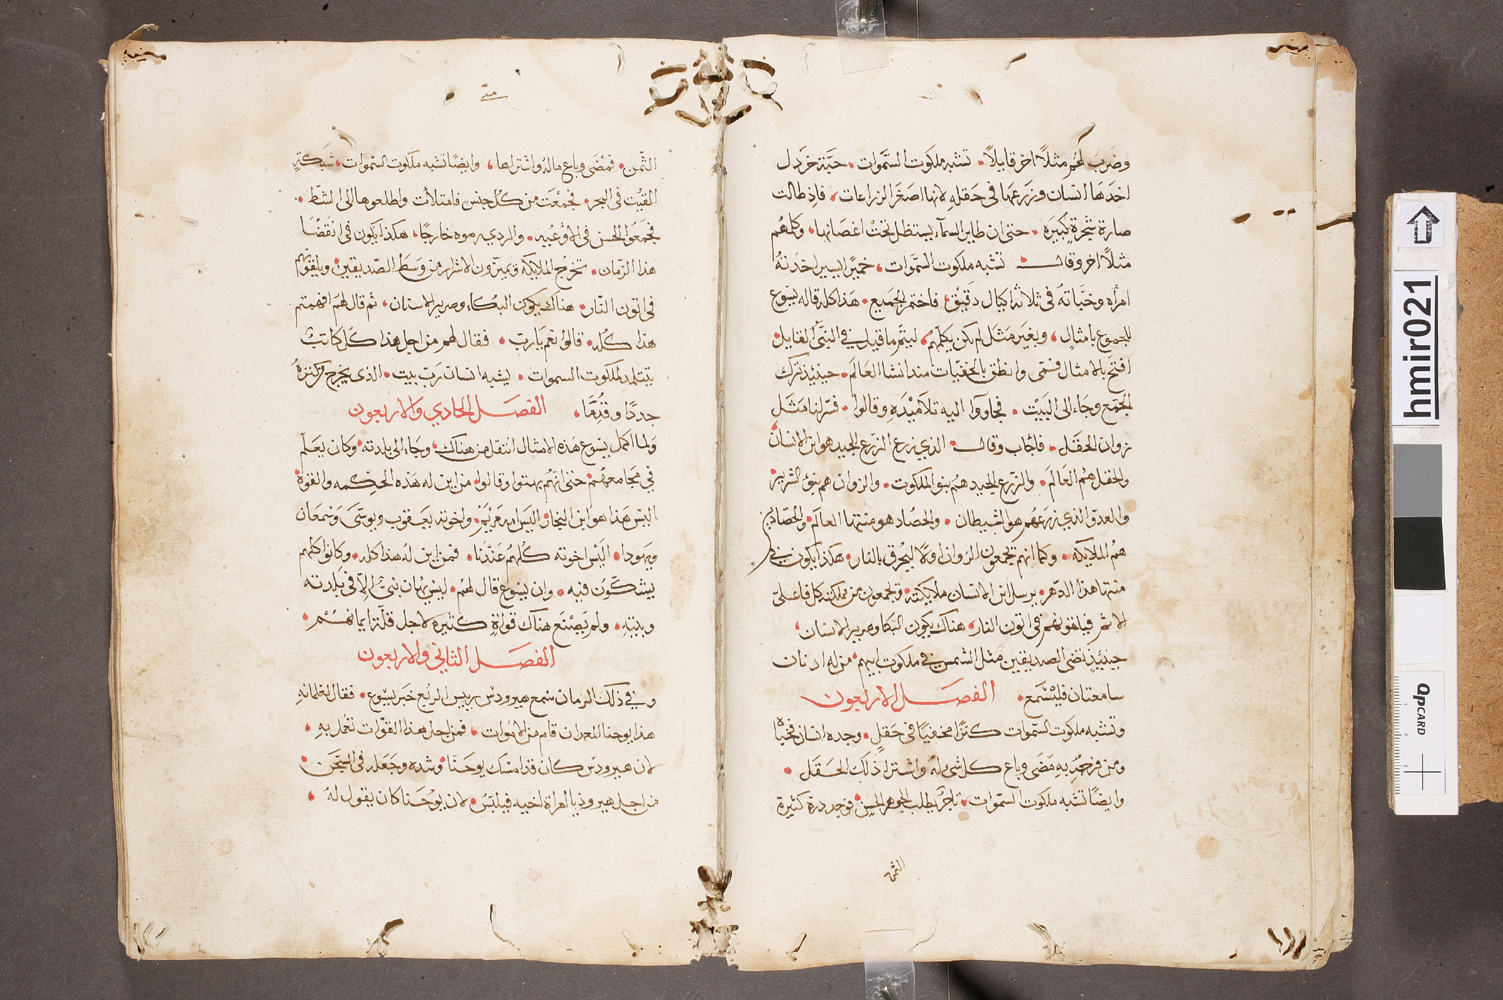 وضرب لهم مثلاً اخر قايلاً تشبه ملكوت السَّموات حبَّة خردل
اخدها انسان وزرعها في حقله لانها اصغر الزراعات فاذ طالت
صارة شجرة كبيره حتى ان طاير السمآء يستظل تحت اغصانها وكلمهم
مثلاً اخر وقال تشبه ملكوت السَّموات خميرًا ليسير اخدته
امراه وخبّاته في ثلاثه اكيال دقيق فاختمر الجميع هذا كله قاله يسوع
للجموع بامثالٍ وبغير مثل لم يكن يكلمهم ليتم ما قيل في النبيّ القايل
افتح بالامثال فمي وانطق بالخفيّات مند انشا العالم حينيذ ترك
الجمع وجاء الى البيت فجاووا اليه تلاميده وقالوا فسر لنا مثل
زوان الحقل فاجاب وقال الذي زرع الزرع الجيد هو ابن الانسان
والحقل هم العالم والزرع الجيد هم بنو الملكوت والزوان هم بنو الشرير
والعدو الذي زرعهم هو الشيطان والحصاد هو منتها العالم والحصادين
هم الملايكه وكما انهم يجمعون الزوان اولا ليحرق بالنار هكذا يكون في
منتها هذا الدهر يرسل ابن الانسان ملايكته وتجمعون من ملكته كل فاعلي
الاثم فيلقونهم في اتون النار هناك يكون البكا وصرير الاسنان
حينيذ تضى الصديقين مثل الشمس في ملكوت ابيهم من له ادنان
سامعتان فليسمع الفصل الاربعون
وتشبه ملكوت السَّموات كنزًا مخفيًا في حقلٍ وجده انسان فخباه
ومن فرحه به مضى وباع كل شي له واشترا ذلك الحقل
وايضًا تشبه ملكوت السَّموات تاجرٌ يطلب الجوهر الحسن فوجد درة كثيرة
الثمن
متى
الثَّمن فمضى وباع ماله واشتراها وايضًا تشبه ملكوت السموات شبكةٍ
القيت في البحر فجمعت من كل جنس فامتلأت واطلعوها الى الشطّ
فجمعوا الحسن في الاوعيه والردي رموه خارجًا هكذا يكون في انقضا
هذا الزمان تخرج الملايكة ويميزون الاشرار من وسط الصديقين ويلقوهم
في اتون النار هناك يكون البكاء وصرير الاسنان ثم قال لهم افهمتم
هذا كله قالوا نعم يا ربّ فقال لهم من اجل هذا كل كاتب
يتتلمد لملكوت السموات يشبه انسان رب بيت الذي يخرج من كنزه
جددًا وقدمًا الفصل الحادي والاربعون
ولما اكمل يسوع هذه الامثال انتقل من هناك وجاء الى بلدته وكان يعلم
في مجامعهم حتى انهم بهتوا وقالوا من اين له هذه الحكمه والقوة
اليس هذا هو ابن النجار اليس امه مريم واخوته يعقوب ويوسى وسمعان
ويهودا اليس اخوته كلهم عندنا فمن اين له هذا كله وكانوا كلهم
يشكّون فيه وان يسوع قال لهم ليس يهان نبيّ الاّ في بلدته
وبيته ولم يصنع هناك قواةٍ كثيره لاجل قلّة ايمانهم
الفصل الثاني والاربعون
وفي ذلك الزمان سمع هيرودس رييس الربع خبر يسوع فقال لغلمانه
هذا يوحنا المعمدان قام من الاموات فمن اجل هذا القوات تعمل به
لان هيرودس كان قد امسك يوحنا وشده وجعله في السجن
من اجل هيروديا امراة اخيه فيلبس لان يوحنا كان يقول له
hmir021
QPCARD